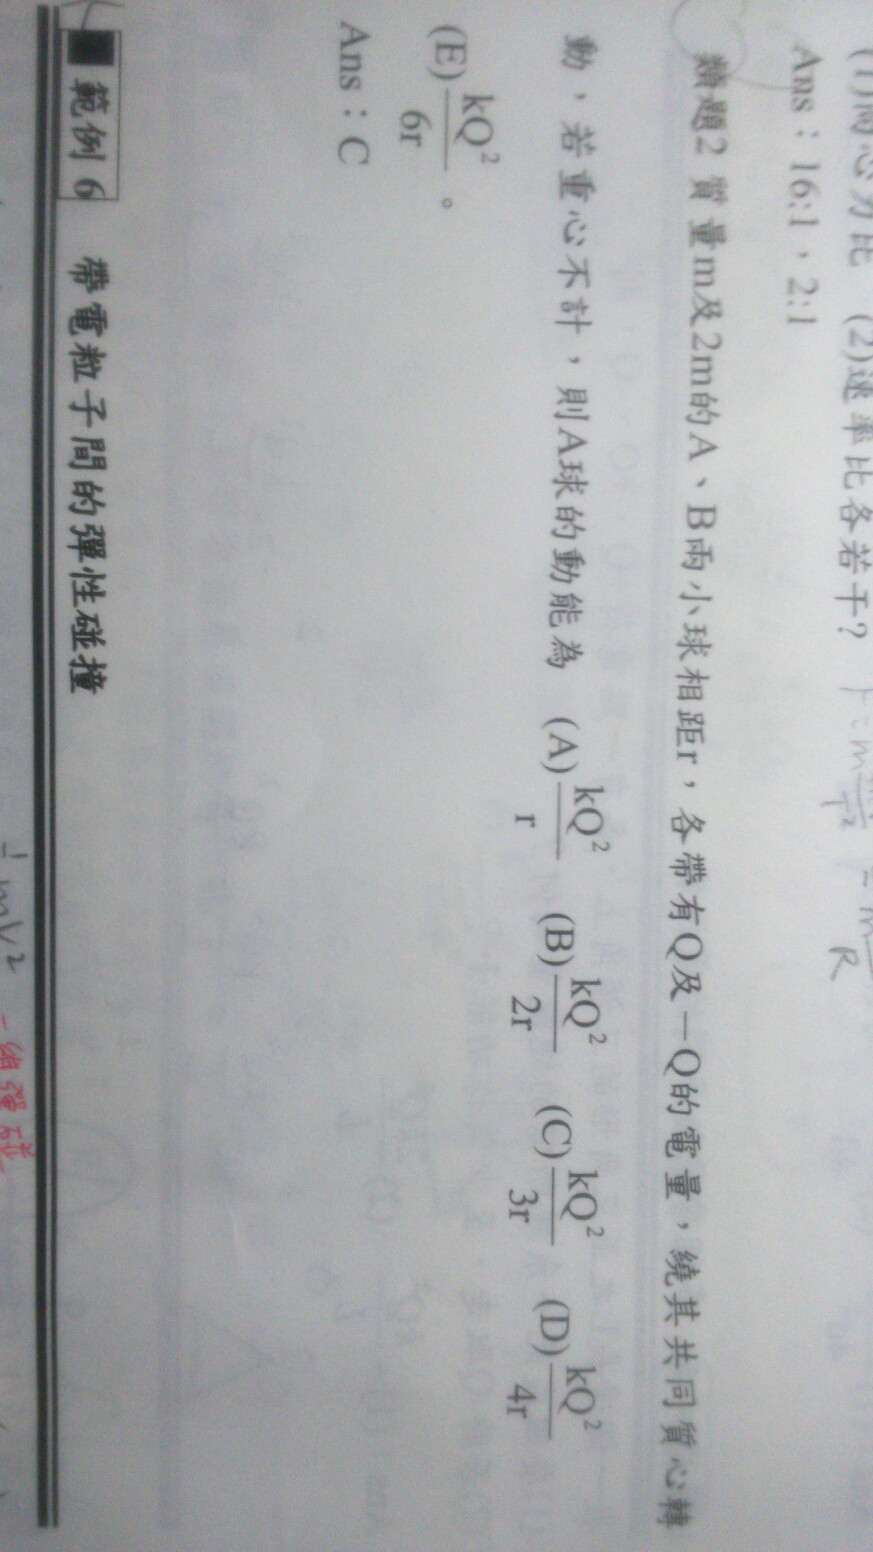 (1)向心力比 (2)速率比各若干?
Ans：16:1，2:1
類題2 質量m及2m的A、B兩小球相距r，各帶有Q及－Q的電量，繞其共同質心轉
動，若重心不計，則A球的動能為 (A) kQ²/r (B) kQ²/2r (C) kQ²/3r (D) kQ²/4r
(E) kQ²/6r 。
Ans：C
範例 6 帶電粒子間的彈性碰撞